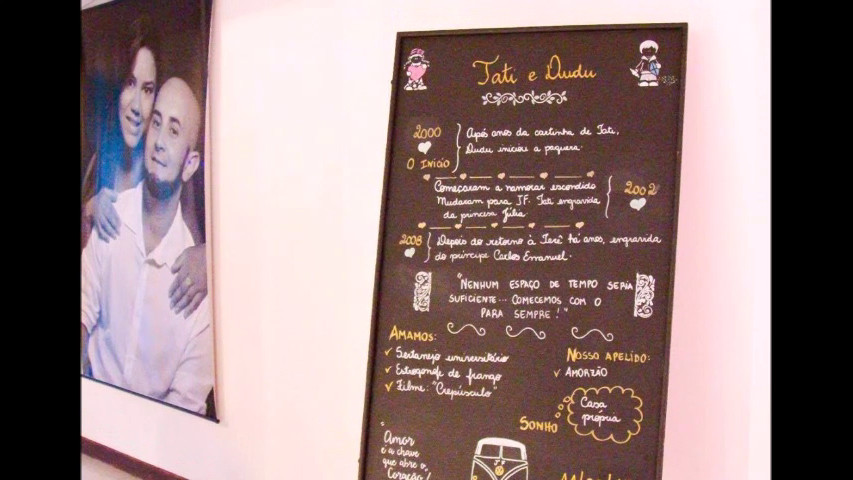 Tati e Dudu
2000
O Início
Após anos da cartinha de Tati,
Dudu iniciou a paquera.
Começaram a namorar escondido
Mudaram para JF. Tati engravida
da princesa Júlia.
2002
2008
Depois do retorno à Terê há anos, engravida
do príncipe Carlos Emanuel.
"NENHUM ESPAÇO DE TEMPO SERIA
SUFICIENTE... COMECEMOS COM O
PARA SEMPRE!"
AMAMOS:
✓ Sertanejo universitário
✓ Estrogonofe de frango
✓ Filme: "Crepúsculo"
NOSSO APELIDO:
✓ AMORZÃO
SONHO
Casa
própria
"Amor
é a chave
que abre o
Coração!